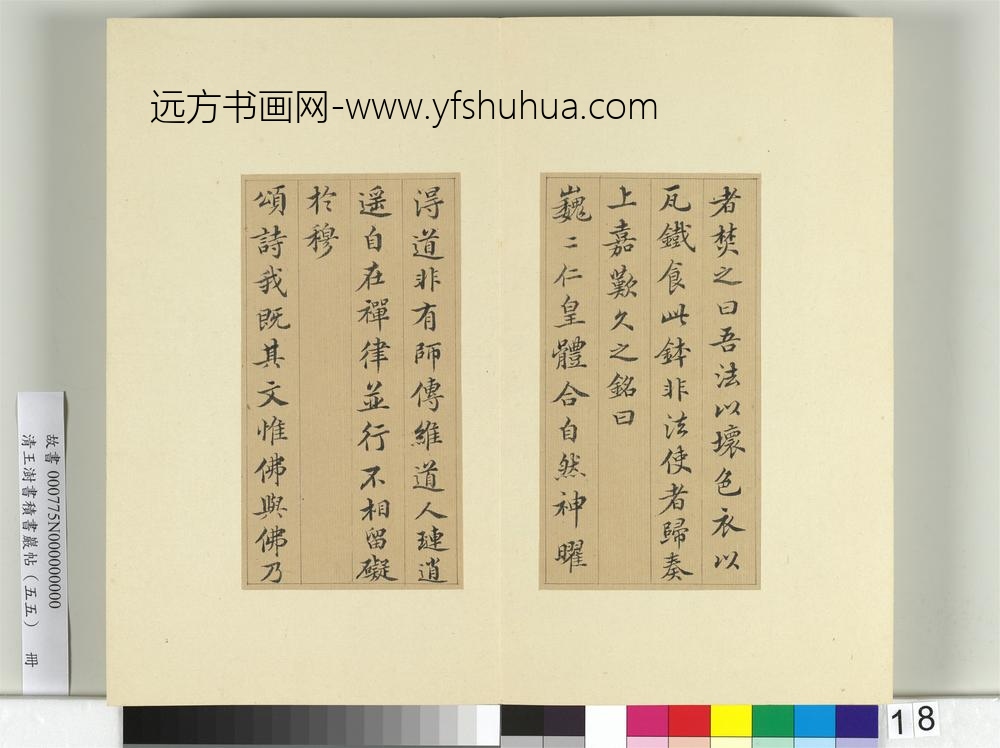 远方书画网-www.yfshuhua.com
者焚之曰吾法以壞色衣以
瓦鐵食此鉢非法使者歸奏
上嘉歎久之銘曰
巍〻仁皇體合自然神曜
得道非有師傳維道人璉逍
遥自在禪律並行不相留礙
於穆
頌詩我既其文惟佛與佛乃
故書 000775N000000000
清王澍書積書巖帖（五五） 冊
18